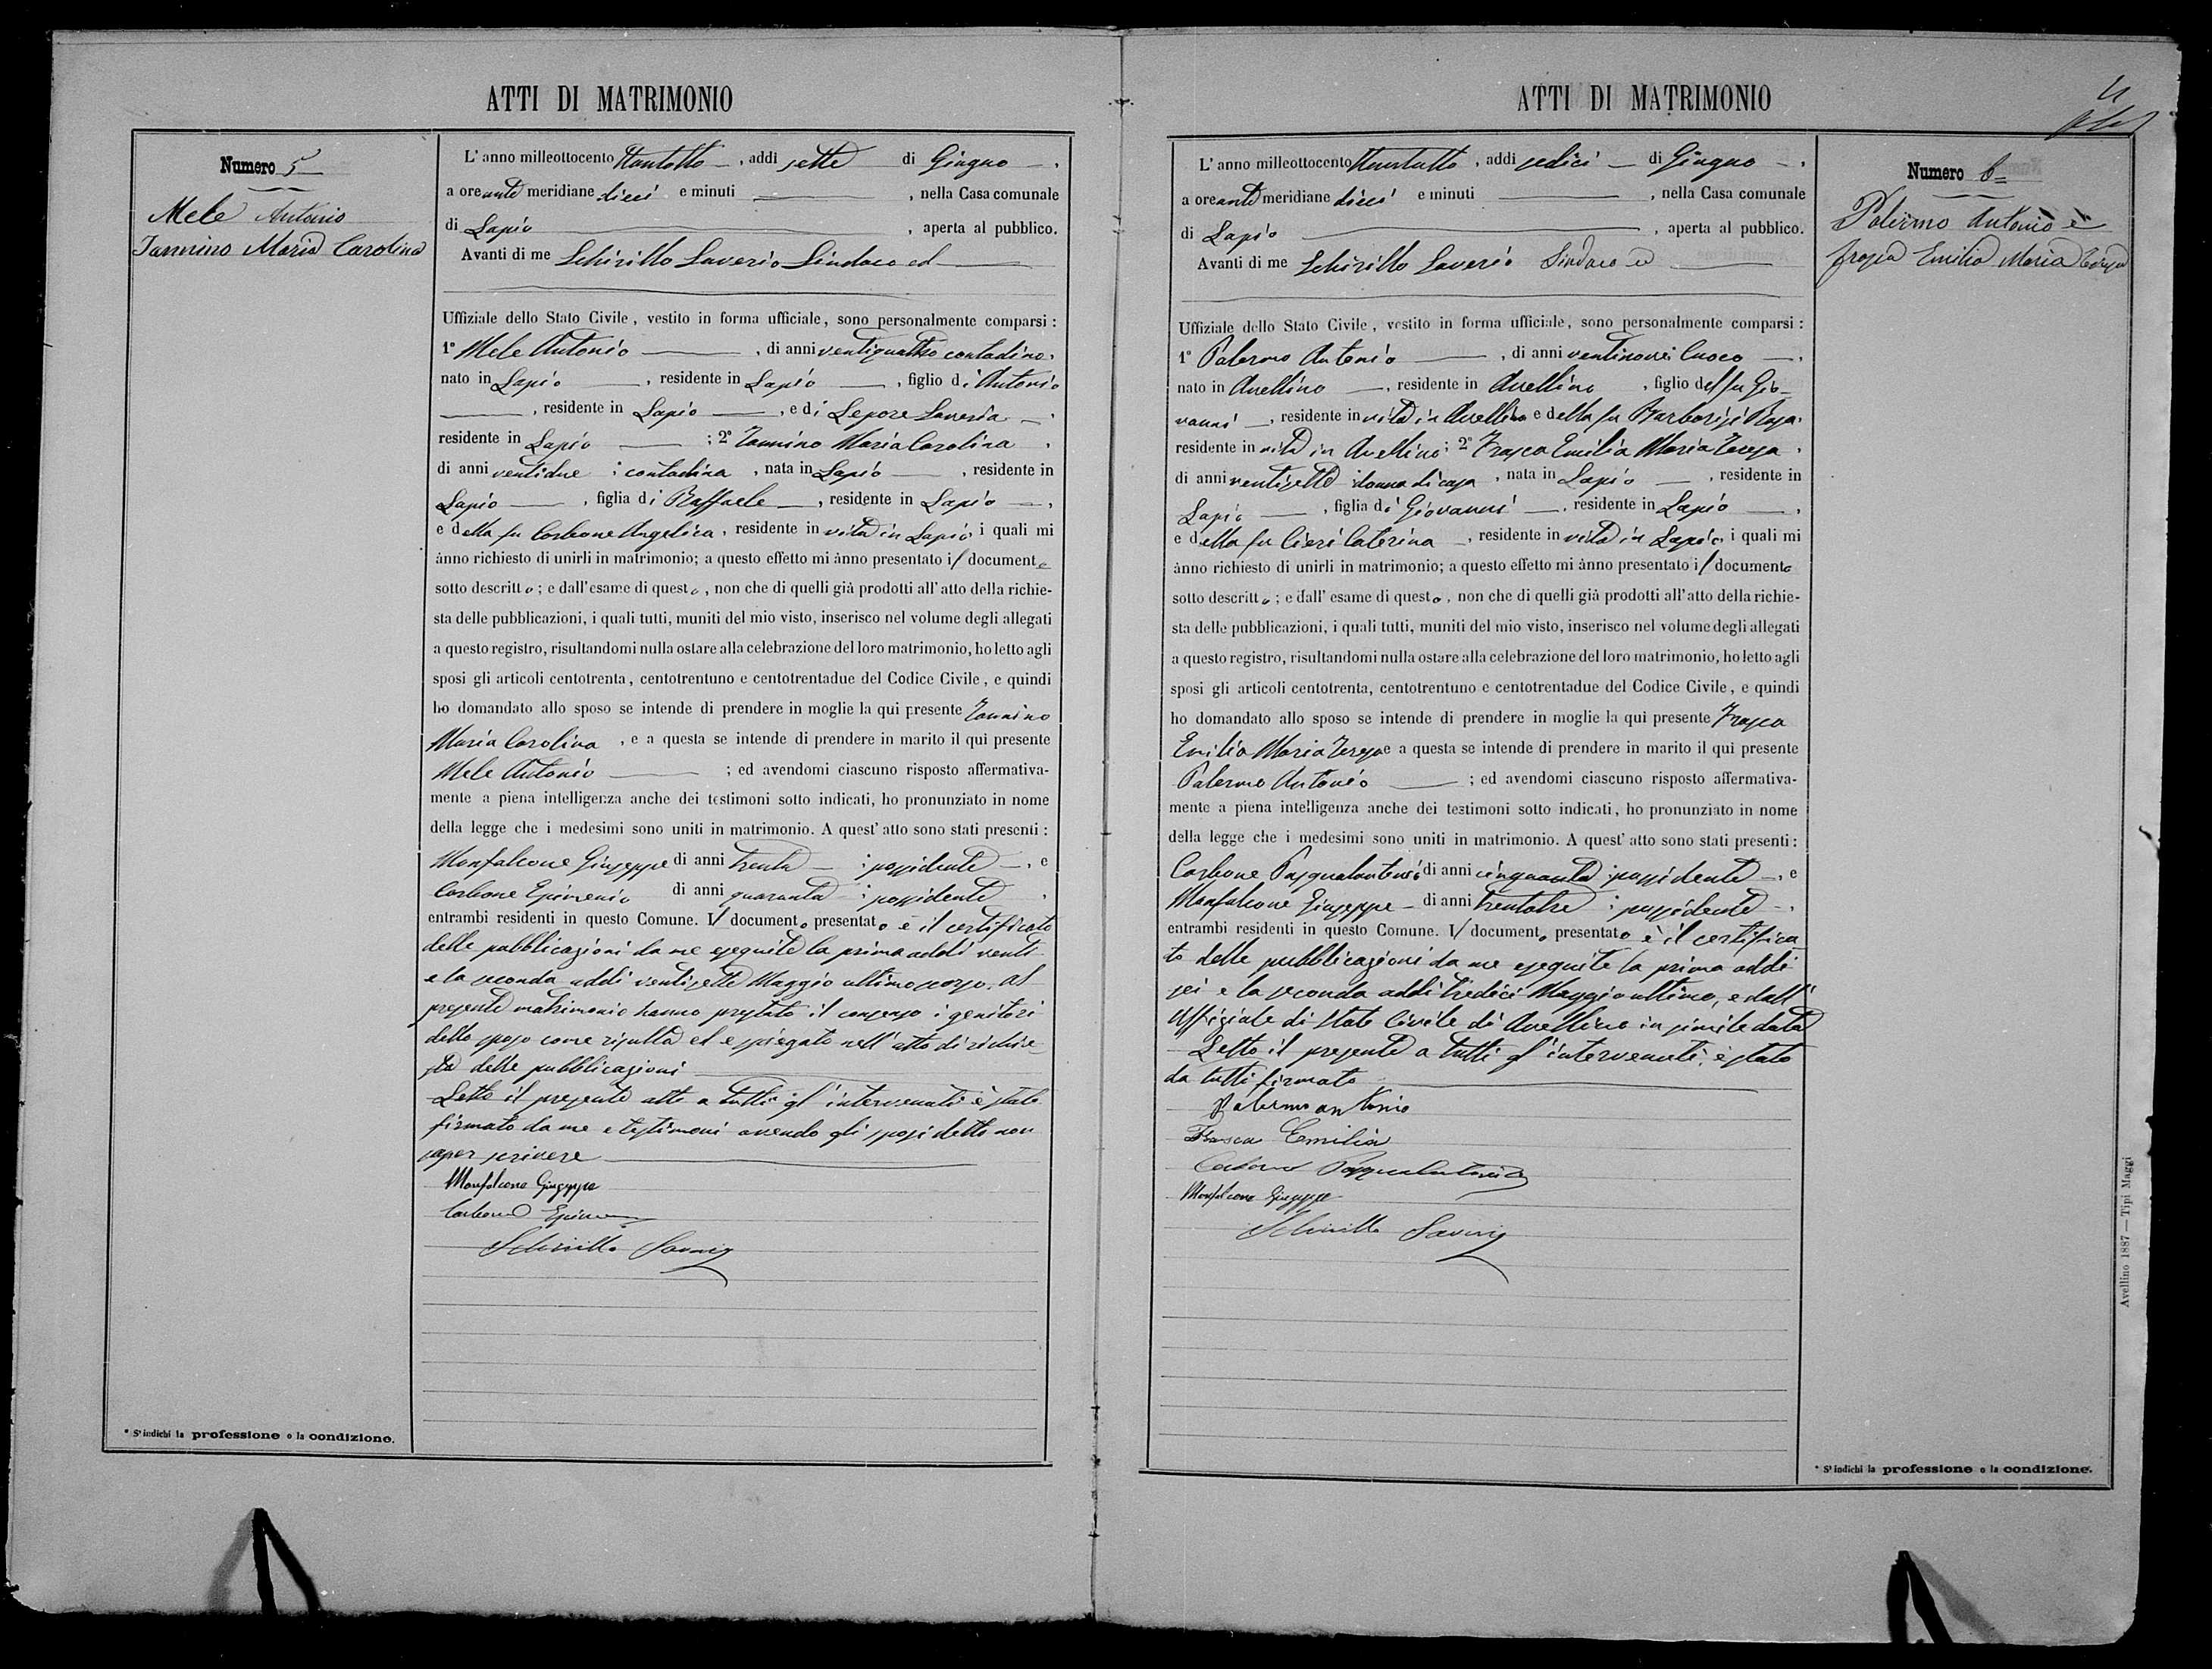 ATTI DI MATRIMONIO
Numero 5
Mele Antonio
Iannino Maria Carolina
L'anno milleottocento ttantotto, addi sette di Giugno,
a ore ante meridiane dieci e minuti , nella Casa comunale
di Lapio , aperta al pubblico.
Avanti di me Schirillo Saverio Sindaco ed
Uffiziale dello Stato Civile, vestito in forma ufficiale, sono personalmente comparsi:
1º Mele Antonio , di anni ventiquattro contadino,
nato in Lapio , residente in Lapio , figlio di Antonio
, residente in Lapio , e di Lepore Saveria,
residente in Lapio ; 2º Iannino Maria Carolina,
di anni ventidue ; contadina , nata in Lapio , residente in
Lapio , figlia di Raffaele , residente in Lapio ,
e della fu Carbone Angelica, residente in vita in Lapio i quali mi
ànno richiesto di unirli in matrimonio; a questo effetto mi ànno presentato il documento
sotto descritto; e dall'esame di questo, non che di quelli già prodotti all'atto della richie-
sta delle pubblicazioni, i quali tutti, muniti del mio visto, inserisco nel volume degli allegati
a questo registro, risultandomi nulla ostare alla celebrazione del loro matrimonio, ho letto agli
sposi gli articoli centotrenta, centotrentuno e centotrentadue del Codice Civile, e quindi
ho domandato allo sposo se intende di prendere in moglie la qui presente Iannino
Maria Carolina , e a questa se intende di prendere in marito il qui presente
Mele Antonio ; ed avendomi ciascuno risposto affermativa-
mente a piena intelligenza anche dei testimoni sotto indicati, ho pronunziato in nome
della legge che i medesimi sono uniti in matrimonio. A quest'atto sono stati presenti:
Monfalcone Giuseppe di anni trenta ; possidente , e
Carbone Epimenio di anni quaranta ; possidente ,
entrambi residenti in questo Comune. Il documento presentato è il certificato
delle pubblicazioni da me eseguite la prima addì venti
e la seconda addì ventisette Maggio ultimo scorso. Al
presente matrimonio hanno prestato il consenso i genitori
dello sposo come risulta ed è spiegato nell'atto di richie-
sta delle pubblicazioni
Letto il presente atto a tutti gl'intervenuti è stato
firmato da me e testimoni avendo gli sposi detto non
saper scrivere
Monfalcone Giuseppe
Carbone
Schirillo Saverio
* S'indichi la professione o la condizione.
ATTI DI MATRIMONIO
Numero 6=
Palermo Antonio e
Frasca Emilia Maria Teresa
L'anno milleottocento ttantotto, addi sedici di Giugno,
a ore ante meridiane dieci e minuti , nella Casa comunale
di Lapio , aperta al pubblico.
Avanti di me Schirillo Saverio Sindaco ed
Uffiziale dello Stato Civile, vestito in forma ufficiale, sono personalmente comparsi:
1º Palermo Antonio , di anni ventinove; Cuoco ,
nato in Avellino , residente in Avellino , figlio del fu Gio-
vanni , residente in vita in Avellino e della fu Barbarisi Rosa,
residente in vita in Avellino; 2º Frasca Emilia Maria Teresa,
di anni ventisette donna di casa , nata in Lapio , residente in
Lapio , figlia di Giovanni , residente in Lapio ,
e della fu Cieri Caterina , residente in vita in Lapio, i quali mi
ànno richiesto di unirli in matrimonio; a questo effetto mi ànno presentato il documento
sotto descritto; e dall'esame di questo, non che di quelli già prodotti all'atto della richie-
sta delle pubblicazioni, i quali tutti, muniti del mio visto, inserisco nel volume degli allegati
a questo registro, risultandomi nulla ostare alla celebrazione del loro matrimonio, ho letto agli
sposi gli articoli centotrenta, centotrentuno e centotrentadue del Codice Civile, e quindi
ho domandato allo sposo se intende di prendere in moglie la qui presente Frasca
Emilia Maria Teresa e a questa se intende di prendere in marito il qui presente
Palermo Antonio ; ed avendomi ciascuno risposto affermativa-
mente a piena intelligenza anche dei testimoni sotto indicati, ho pronunziato in nome
della legge che i medesimi sono uniti in matrimonio. A quest'atto sono stati presenti:
Carbone Pasqualantonio di anni cinquanta possidente , e
Monfalcone Giuseppe di anni trentatre ; possidente ,
entrambi residenti in questo Comune. Il documento presentato è il certifica
to delle pubblicazioni da me eseguite la prima addì
sei e la seconda addì tredici Maggio ultimo, e dall'
Uffiziale di Stato Civile di Avellino in simile data
Letto il presente a tutti gl'intervenuti, è stato
da tutti firmato
Palermo antonio
Frasca Emilia
Carbone Pasqualantonio
Monfalcone Giuseppe
Schirillo Saverio
* S'indichi la professione o la condizione.
Avellino 1887 — Tipi Maggi